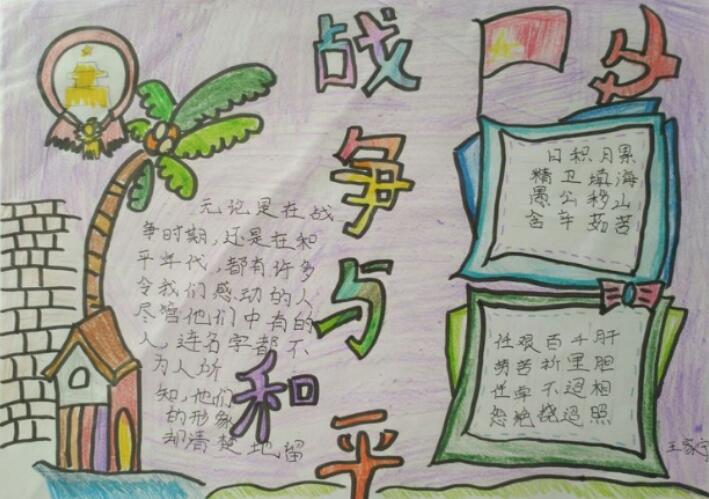 战争与和平
无论是在战
争时期，还是在和
平年代，都有许多
令我们感动的人
尽管他们中有的
人，连名字都不
为人所
知，他们
的形象
却清楚地留
日积月累
精卫填海
愚公移山
含辛茹苦
任艰百千肝
劳苦折里胆
任卓不迢相
怨绝挠迢照
王家